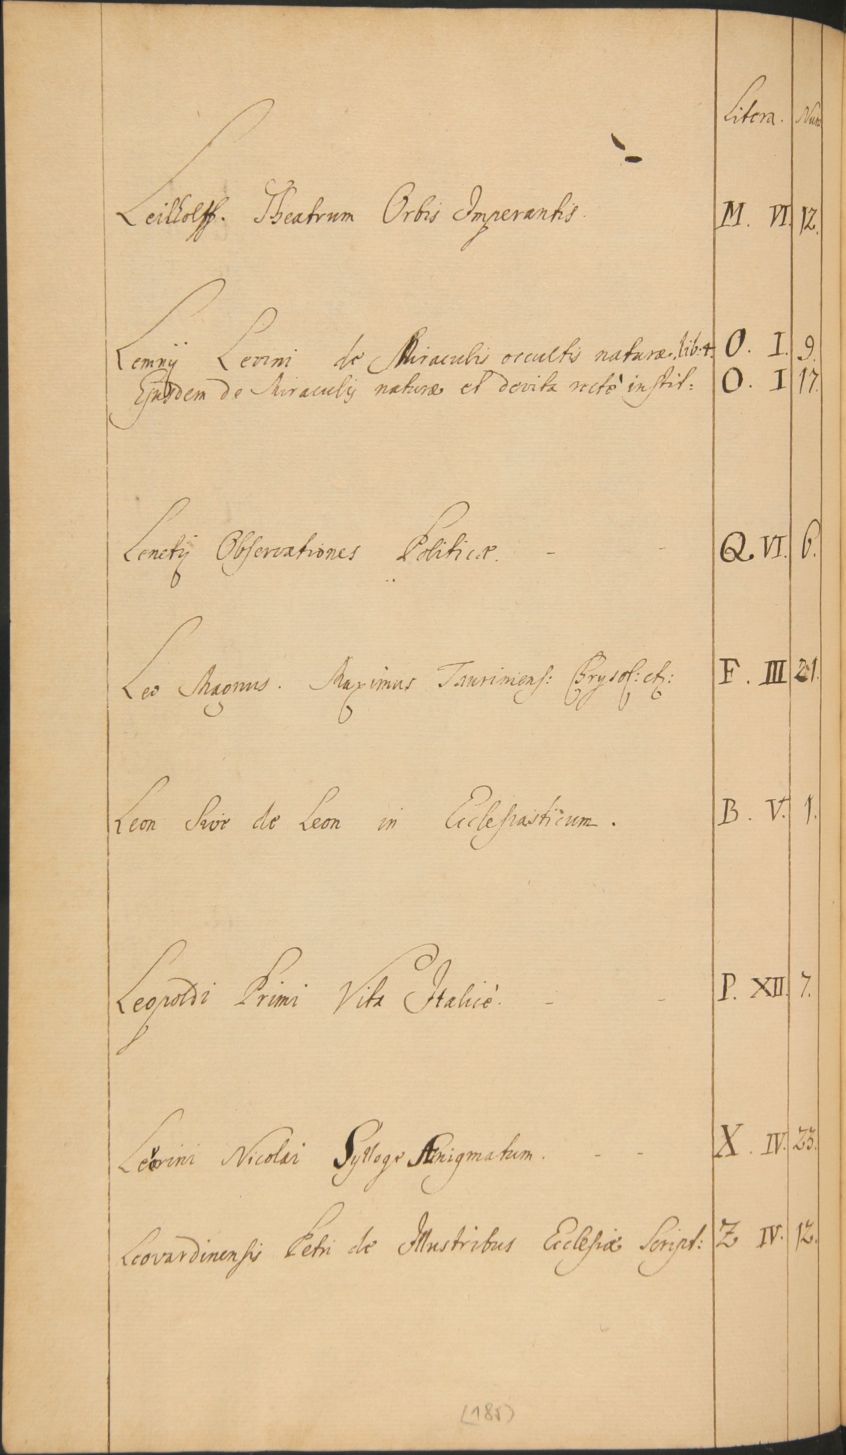 Litera. Num
Theatrum Orbis Imperantis. M. VI. 12.
Lemnij Levini de Miraculis occultis naturæ. lib: 4. O. I. 9.
Ejusdem de Miraculis naturæ et de vita rectè instit: O. I 17.
Observationes Politicæ. - - Q. VI. 6.
Leo Magnus. Maximus Taurinens: Chrysol: etc: F. III 21.
Leon Sive de Leon in Ecclesiasticum. B. V. 1.
Leopoldi Primi Vita Italicè. - - P. XII. 7.
Nicolai Sylloge Ænigmatum. - - X. IV. 23.
Leovardinensis Petri de Illustribus Ecclesiæ Script: Z IV. 12.
(185)